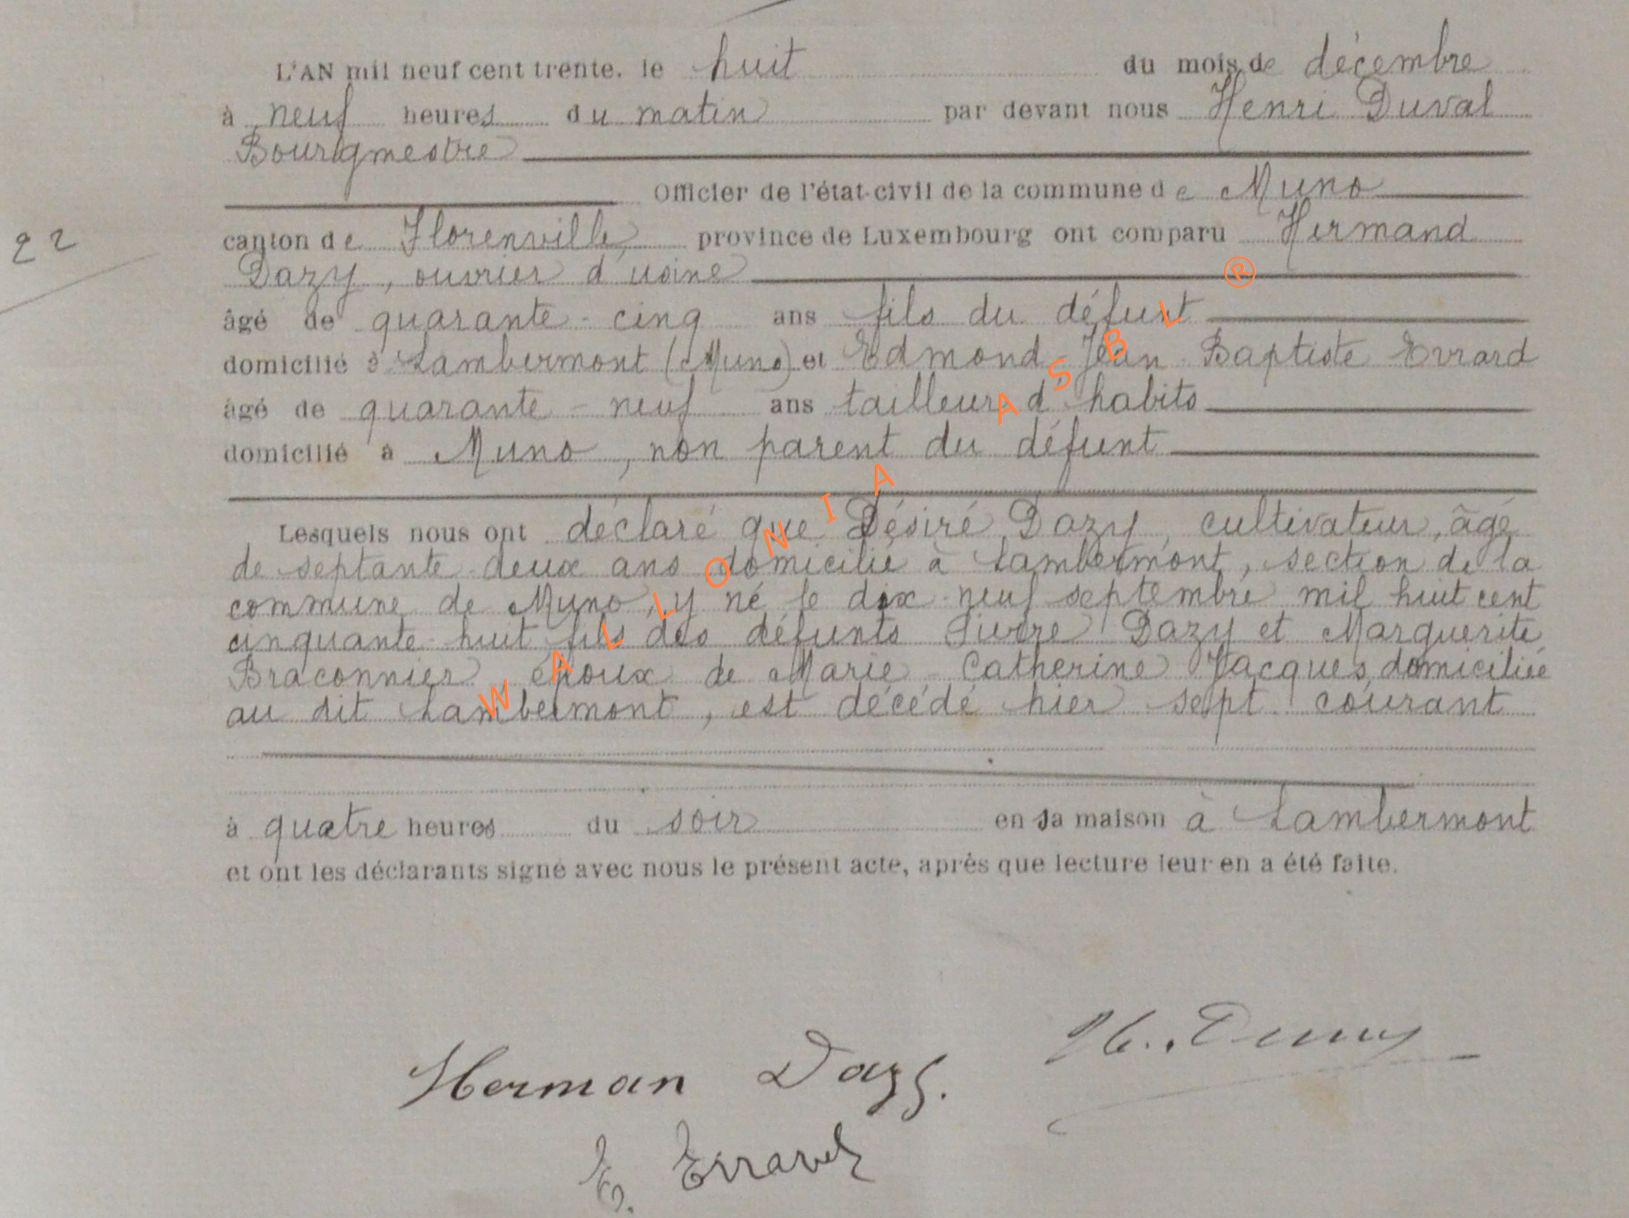 L'AN mil neuf cent trente. le huit du mois de décembre
à neuf heures du matin par devant nous Henri Duval
Bourgmestre
Officier de l'état-civil de la commune de Muno
22
canton de Florenville province de Luxembourg ont comparu Hermand
Dazy, ouvrier d'usine
âgé de quarante-cinq ans fils du défunt
domicilié à Lambermont (Muno) et Edmond Jean Baptiste Evrard
âgé de quarante-neuf ans tailleur d'habits
domicilié à Muno, non parent du défunt
Lesquels nous ont déclaré que Désiré Dazy, cultivateur, âgé
de septante-deux ans domicilié à Lambermont, section de la
commune de Muno, y né le dix-neuf septembre mil huit cent
cinquante-huit fils des défunts Dazy et Marguerite
Braconnier époux de Marie-Catherine Jacques domiciliée
au dit Lambermont, est décédé hier sept courant
à quatre heures du soir en sa maison à Lambermont
et ont les déclarants signé avec nous le présent acte, après que lecture leur en a été faite.
Herman Dazy.
E. Evrard
WALLONIA ASBL ®